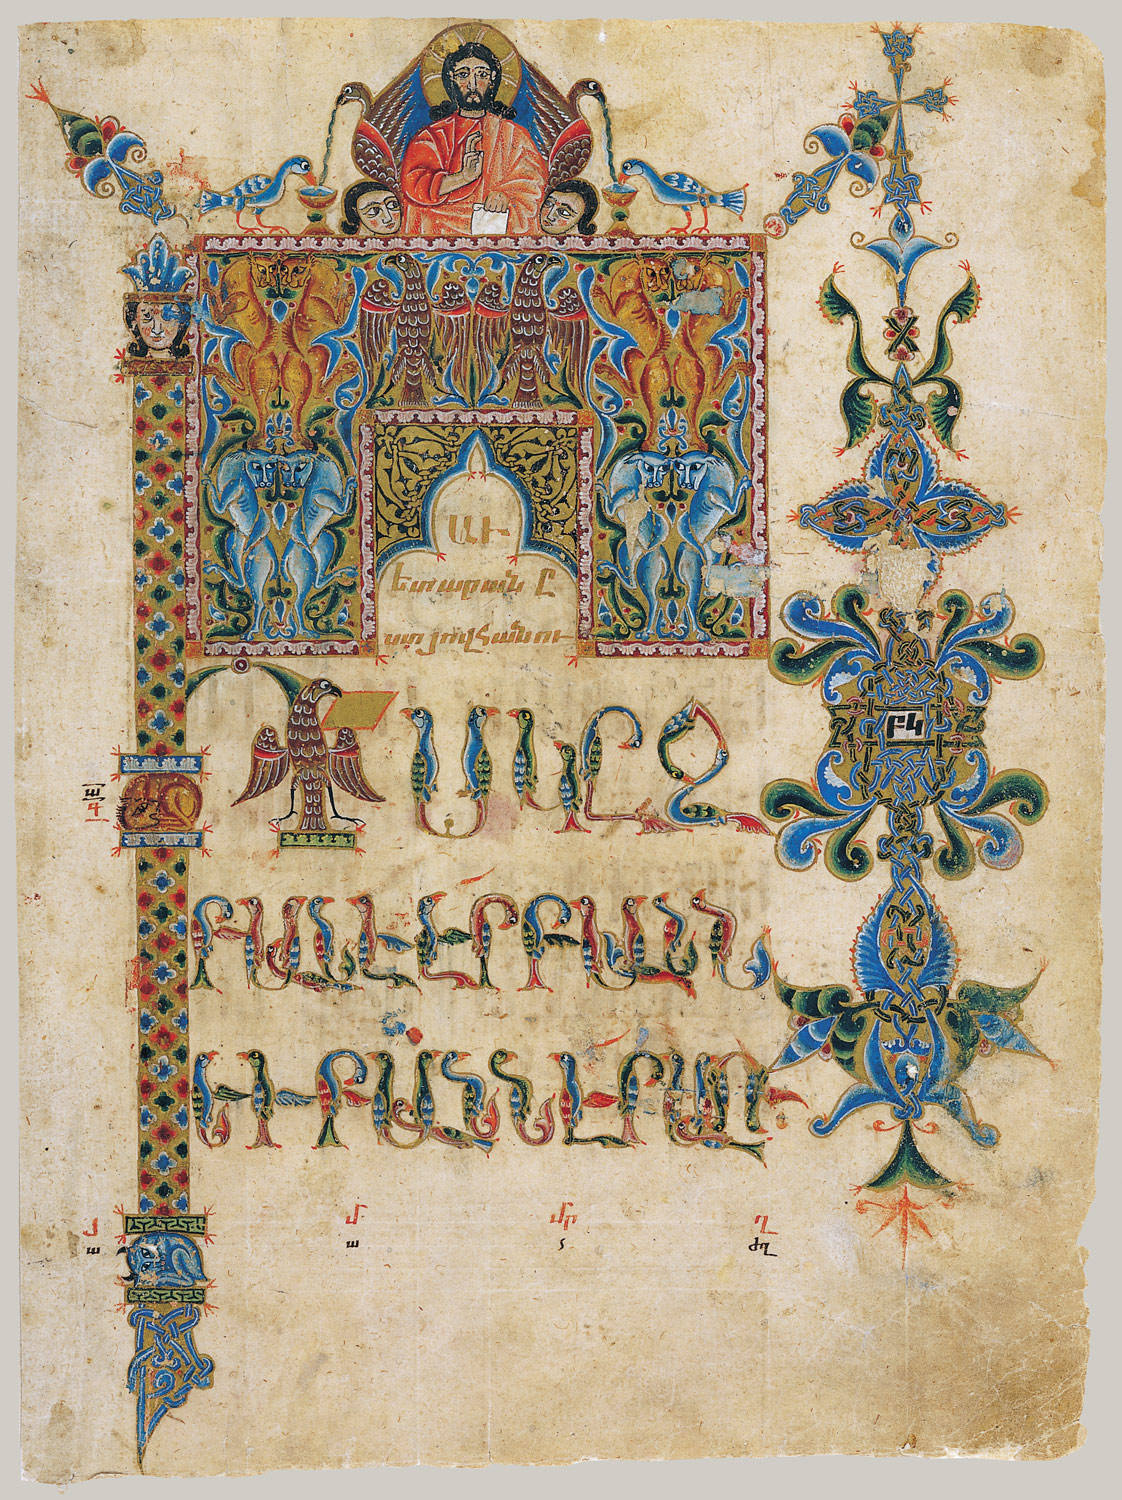 ԱՒ
ետարան ը
ստ յովհանու
Ի ՍԿԸԶ
ԲԱՆԷ ԷՐ ԲԱՆՆ
ԵՒ ԲԱՆՆ ԷՐ ԱՌ
ԲԿ
յ մ մր ղ